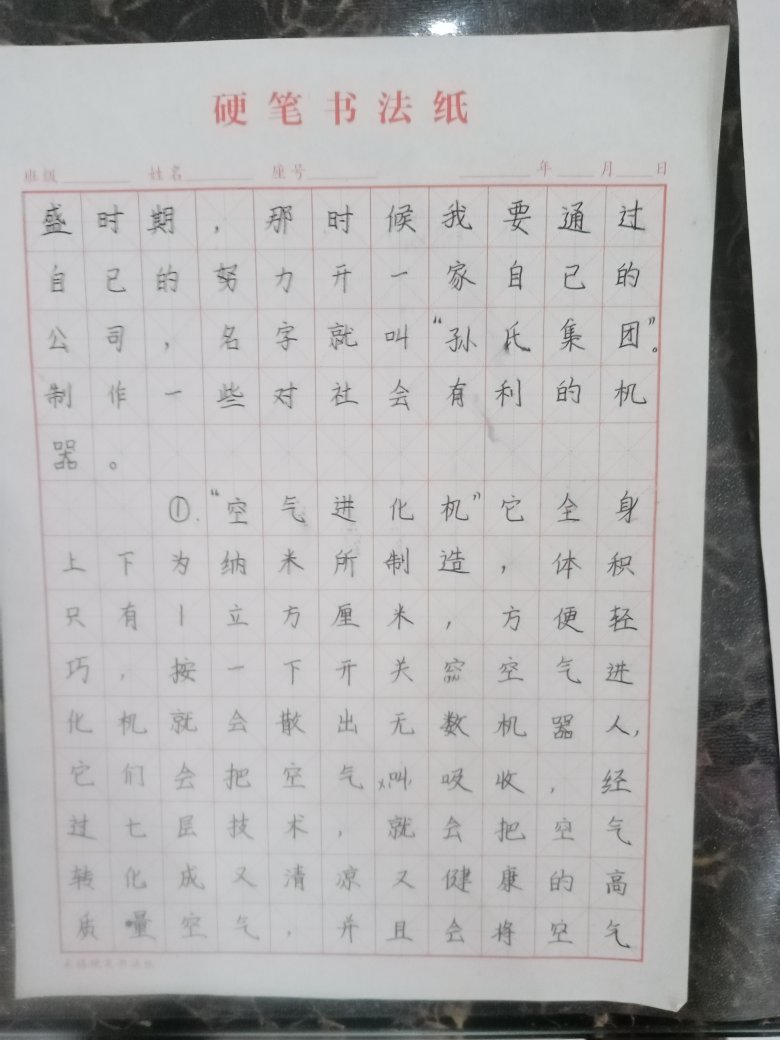 硬笔书法纸
班级 姓名 座号 年 月 日
盛时期，那时候我要通过
自己的努力开一家自己的
公司，名字就叫“孙氏集团”。
制作一些对社会有利的机
器。
①.“空气进化机”它全身
上下为纳米所制造，体积
只有1立方厘米，方便轻
巧，按一下开关空气进
化机就会散出无数机器人，
它们会把空气吸收，经
过七层技术，就会把空气
转化成又清凉又健康的高
质量空气，并且会将空气